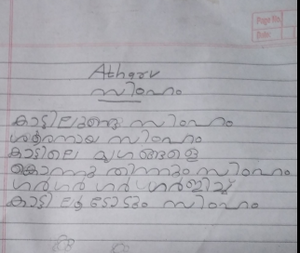 Page No.
Date
Atharv
സിംഹം
കാട്ടിലുണ്ടു സിംഹം
ശൂരനായ സിംഹം
കാട്ടിലെ മൃഗങ്ങളെ
കൊന്നു തിന്നും സിംഹം
ഗർഗർ ഗർ ഗർജിച്ച്
കാട്ടിലൂടോടും സിംഹം